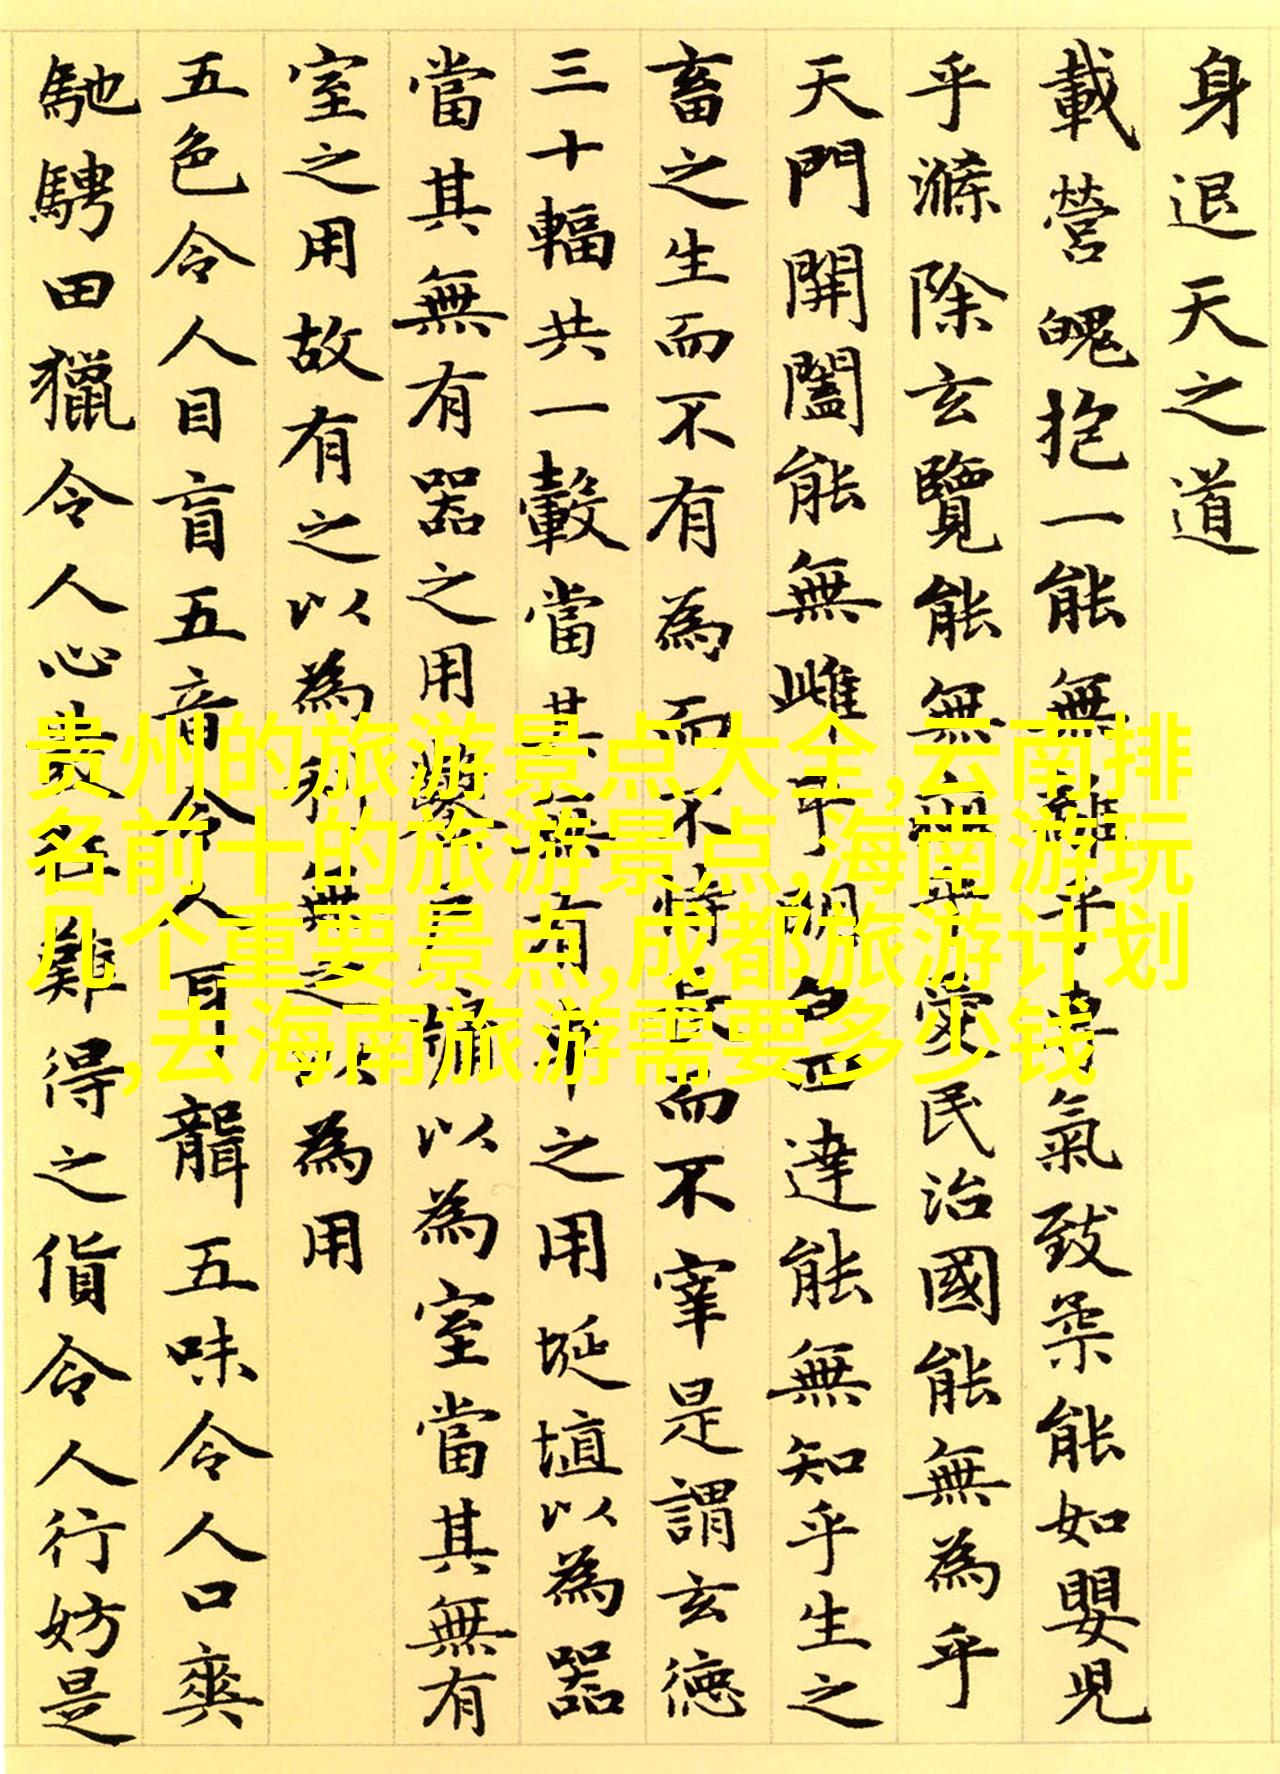 身退天之道
載營魄抱一能無離乎專氣致柔能如嬰児
乎滌除玄覽能無疵乎愛民治國能無為乎
天門開闔能無雌乎明白四達能無知乎生之
畜之生而不有為而不恃長而不宰是謂玄徳
三十輻共一轂當其無有車之用埏埴以為器
當其無有器之用鑿戶牖以為室當其無有
室之用故有之以為利無之以為用
五色令人目盲五音令人耳聾五味令人口爽
馳騁田獵令人心發狂難得之貨令人行妨是
贵州的旅游景点大全,云南排
名前十的旅游景点,海南游玩
几个重要景点,成都旅游计划
,去海南旅游需要多少钱